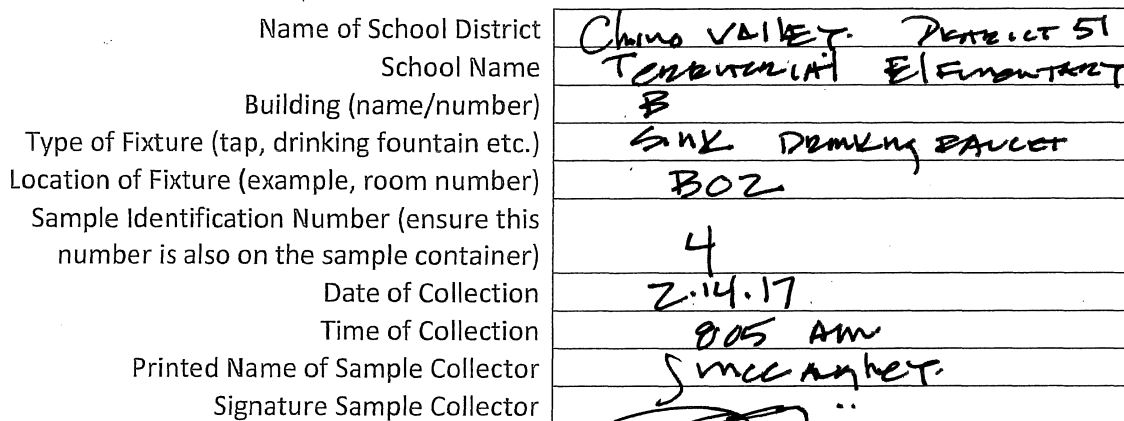 Name of School District Chino VAllEY. District 51
School Name Territorial Elementary
Building (name/number) B
Type of Fixture (tap, drinking fountain etc.) Sink Drinking FAUCET
Location of Fixture (example, room number) B02
Sample Identification Number (ensure this
number is also on the sample container) 4
Date of Collection 2.14.17
Time of Collection 805 AM
Printed Name of Sample Collector
Signature Sample Collector